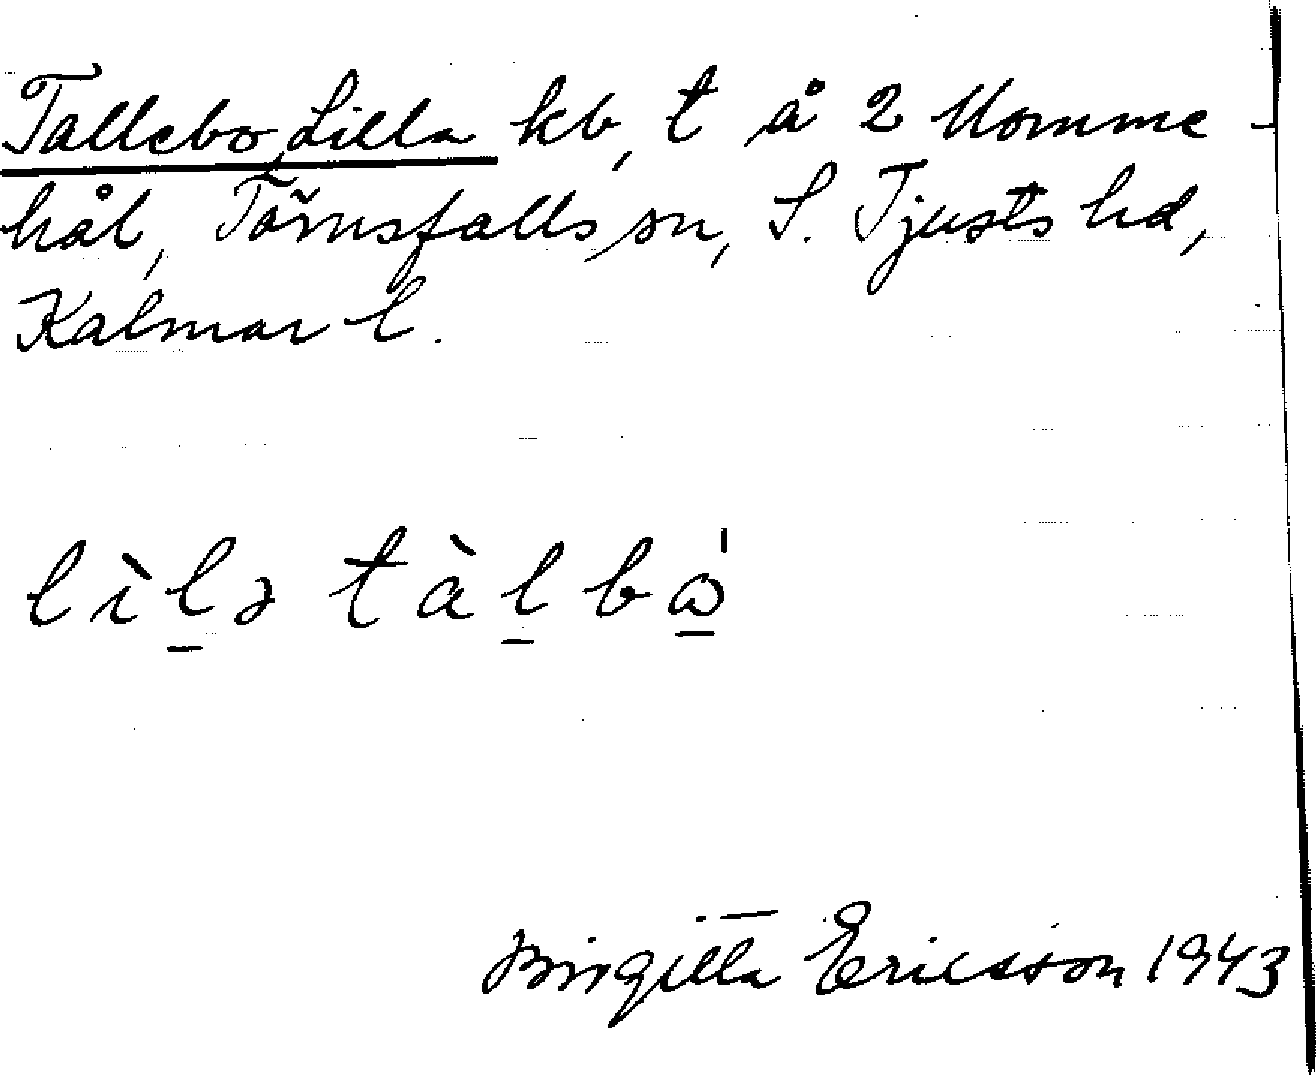 Tallebo, Lilla kb, t å 2 Momme-
hål, Törnsfalls sn, S. Tjusts hd,
Kalmar l.
lìl̲ə tàl̲bω̲̍
Birgitta Ericsson 1943